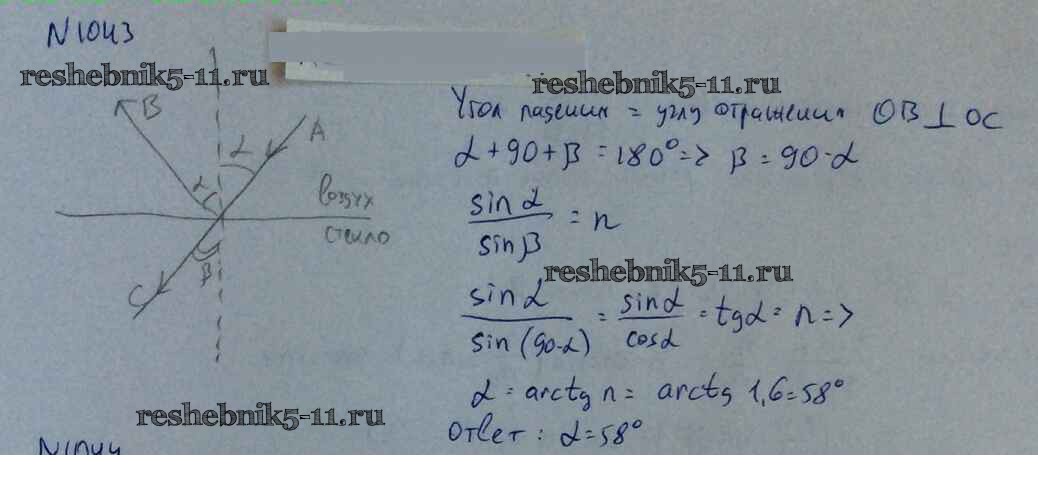 N1043
reshebnik5-11.ru
reshebnik5-11.ru
B
A
α
α
воздух
стекло
β
C
Угол падения = углу отражения OB ⊥ OC
α + 90 + β = 180° => β = 90 - α
sin α / sin β = n
reshebnik5-11.ru
sin α / sin (90-α) = sin α / cos α = tg α = n =>
α = arctg n = arctg 1,6 = 58°
reshebnik5-11.ru
Ответ: α = 58°
N1044